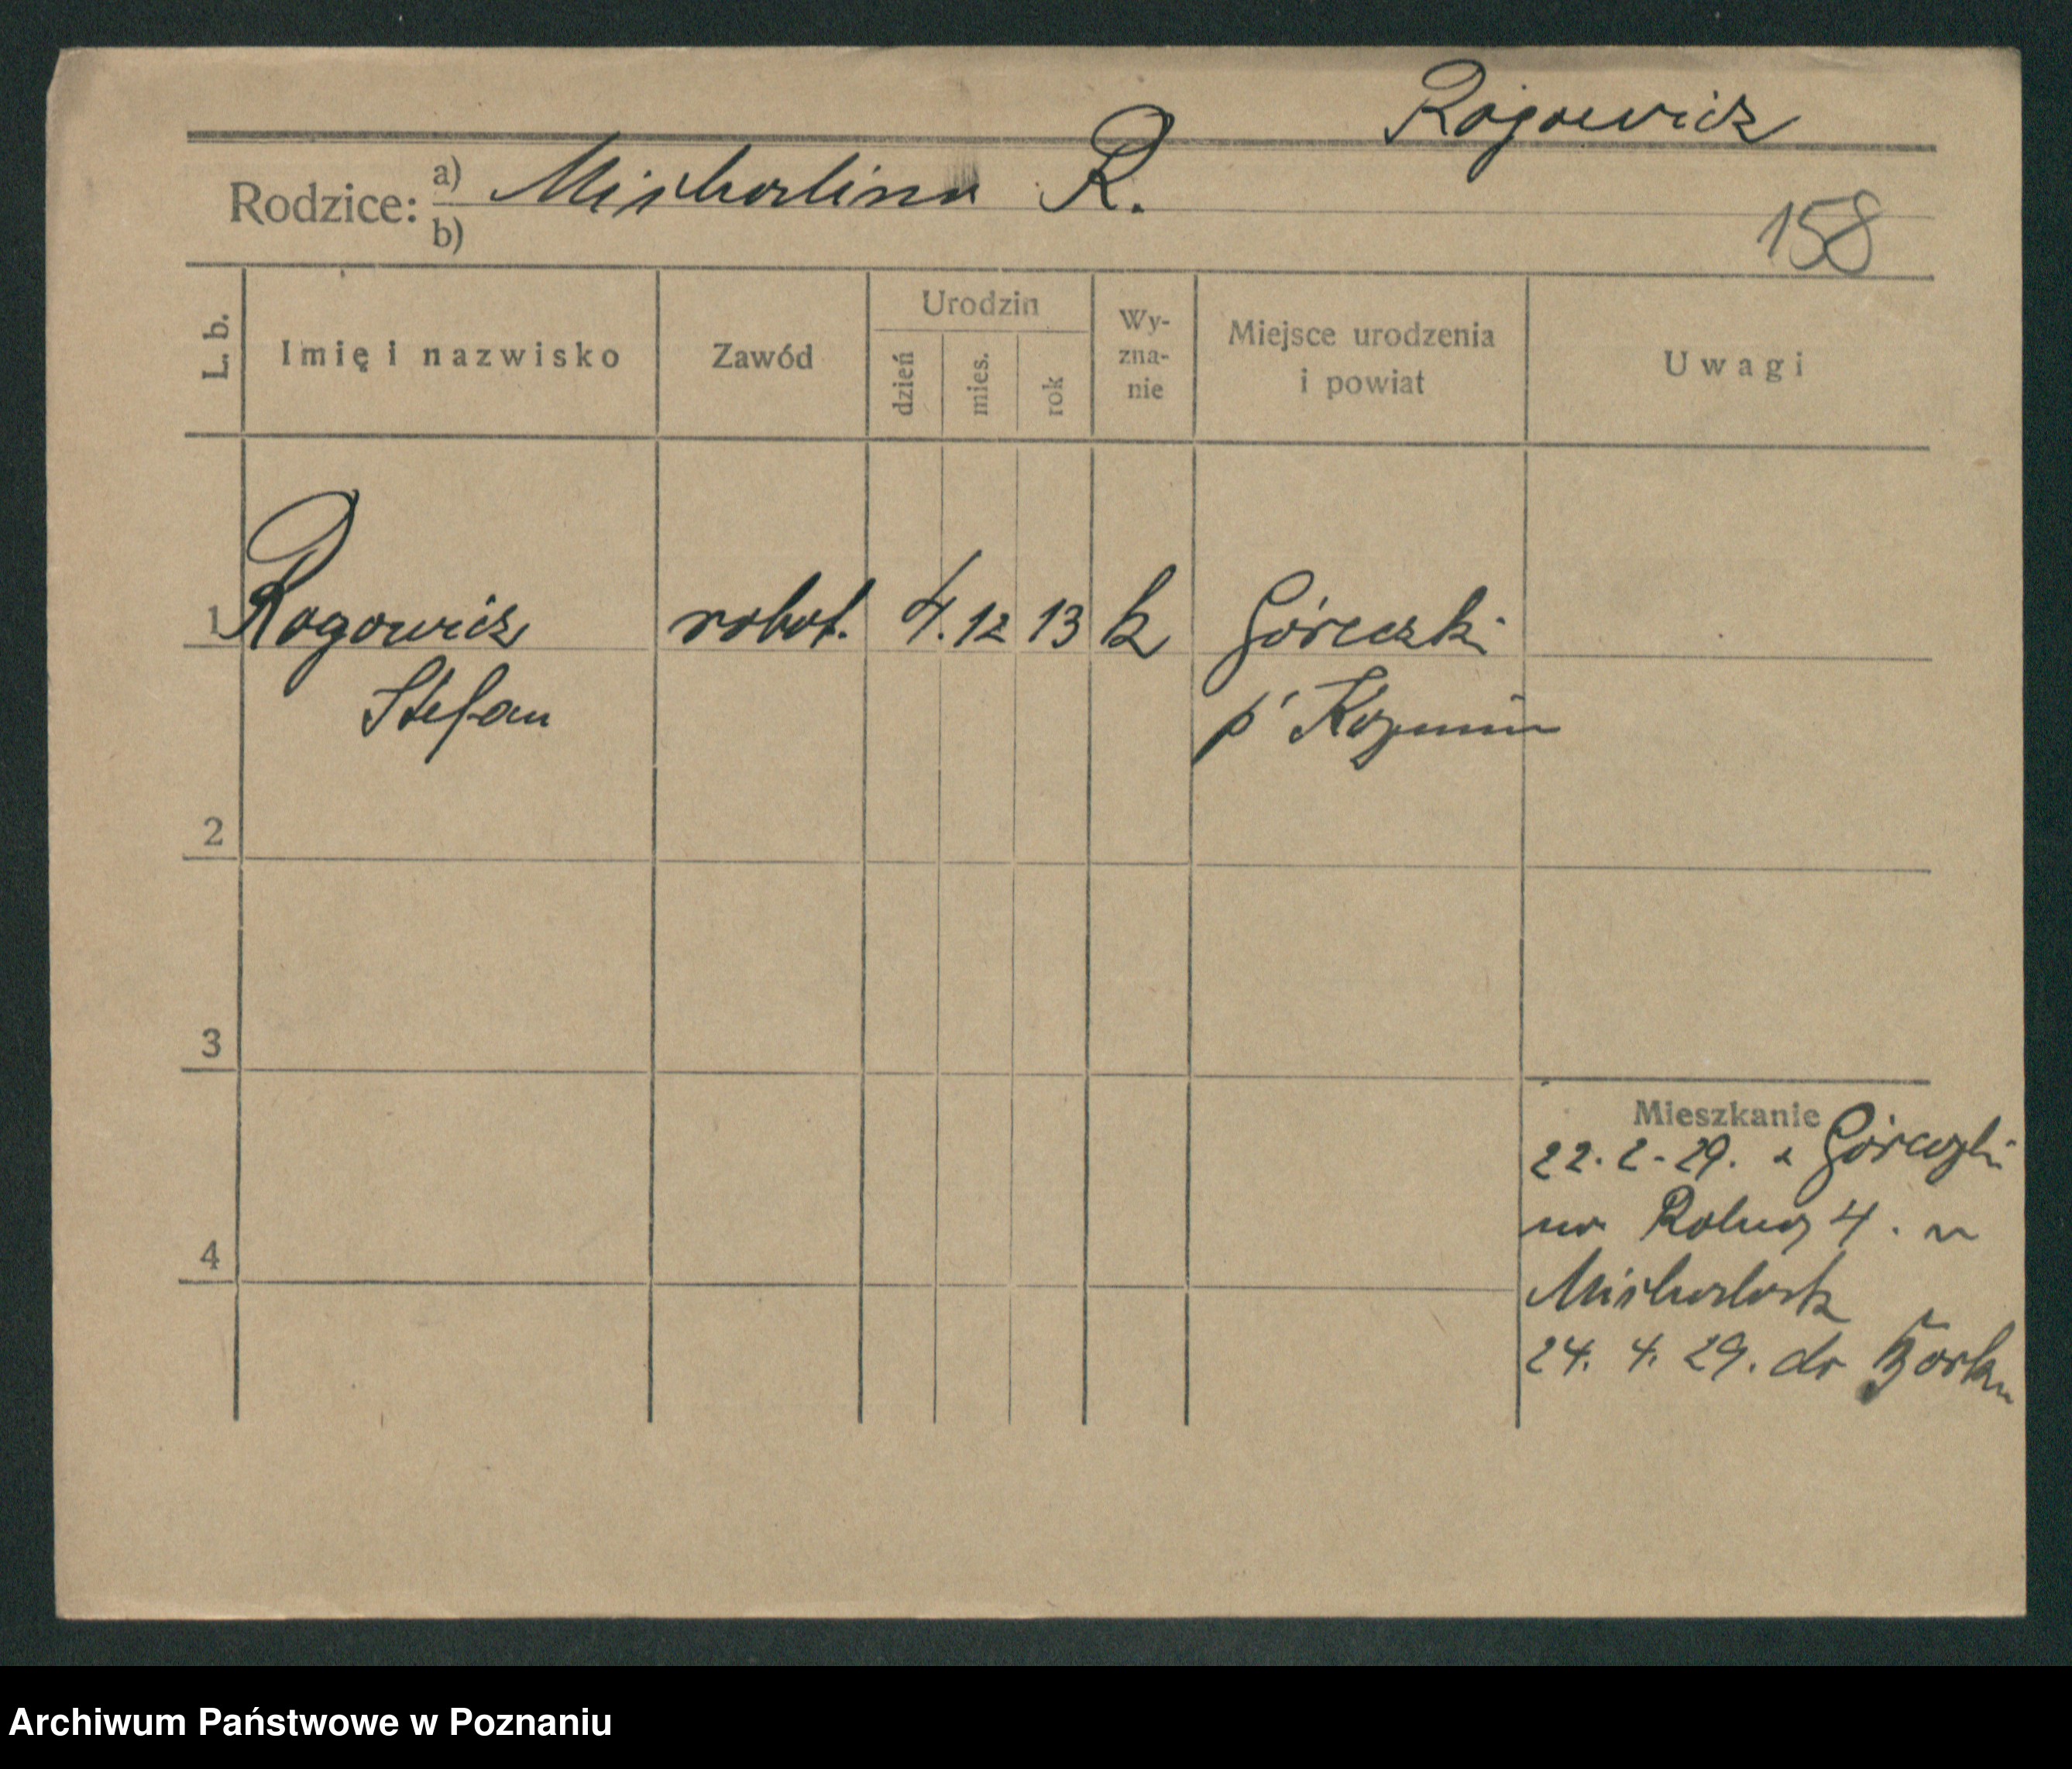 Rogowicz
Rodzice: a) Michalina R.
b)
158
L. b.
Imię i nazwisko
Zawód
Urodzin
dzień
mies.
rok
Wy-
zna-
nie
Miejsce urodzenia
i powiat
Uwagi
1 Rogowicz robot. 4. 12 13 k Góreczki
Stefan p. Koźmin
2
3
Mieszkanie
22. 2. 29. z Góreczki
na Rolną 4. u
Michalak
4
24. 4. 29. do Borku
Archiwum Państwowe w Poznaniu